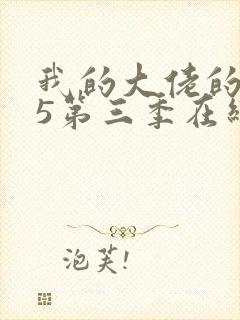 我的大佬的
5第三季在
泡芙!